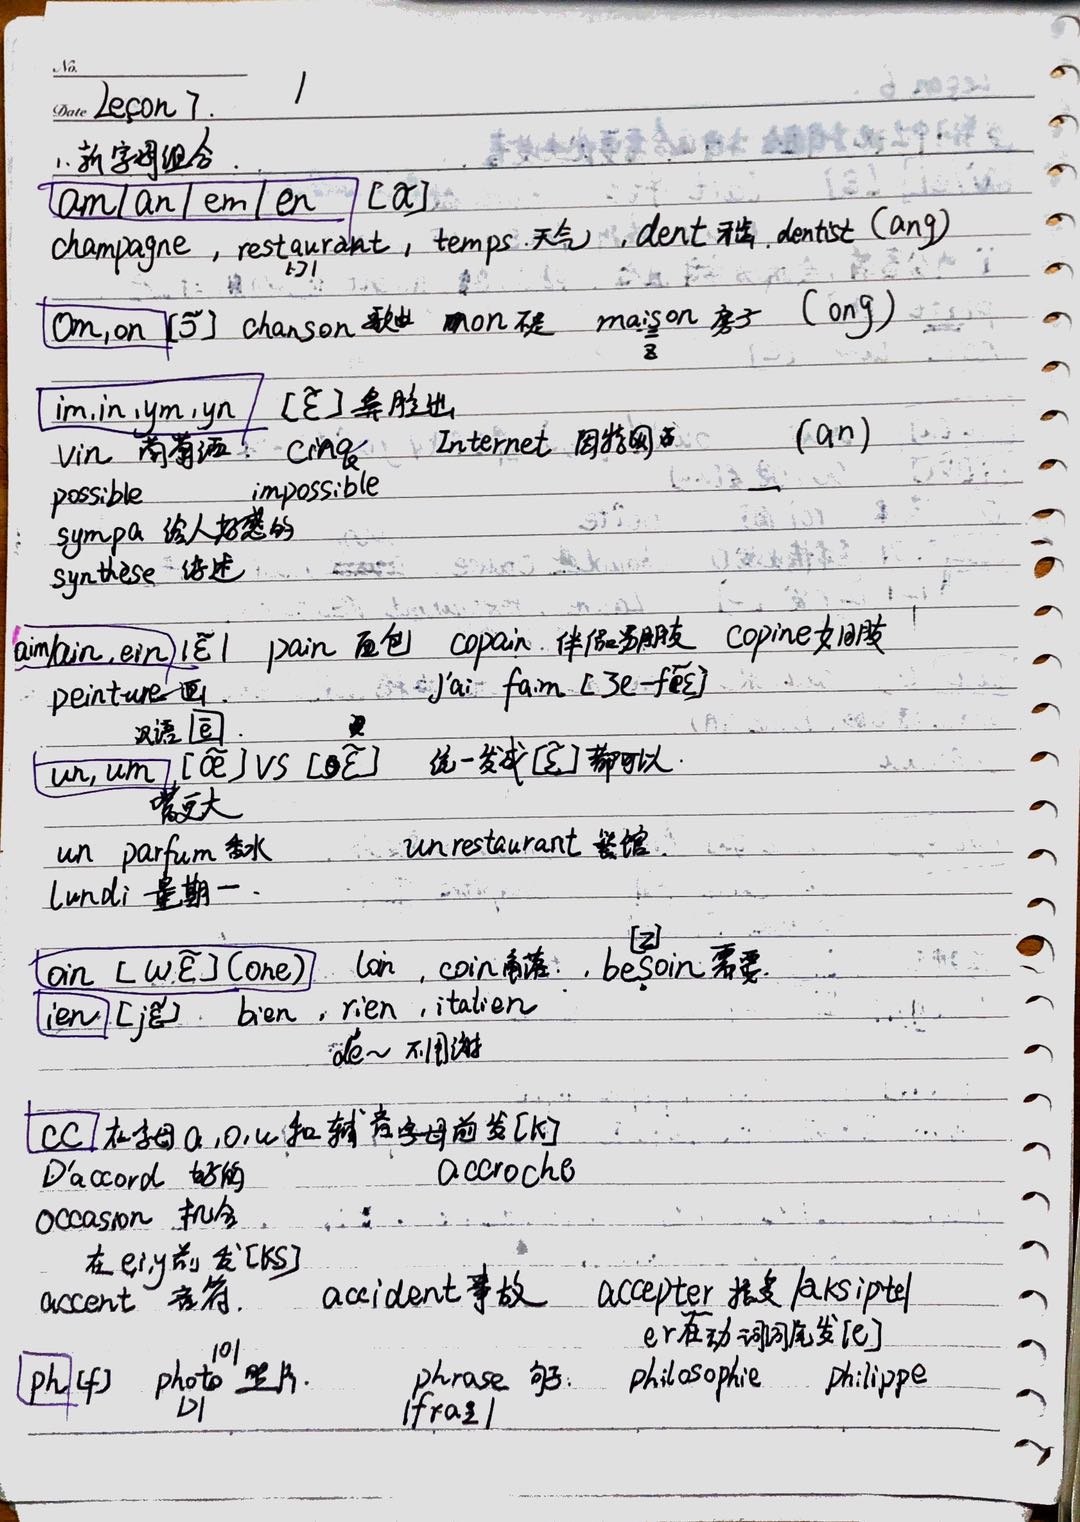 No.
Date Leçon 7. 1
1. 新字母组合.
am/an/em/en [ɑ̃]
champagne, restaurant, temps 天气, dent 牙齿. dentist (ang)
[ɔ]
om, on [ɔ̃] chanson 歌曲 non 不是 maison 房子 (ong)
z
im, in, ym, yn [ɛ̃] 鼻腔出
vin 葡萄酒. cinq Internet 因特网 (an)
k
possible impossible
sympa 给人好感的
synthèse 综述
aim/ain, ein /ɛ̃/ pain 面包 copain 伴侣男朋友 copine 女朋友
peinture 画 j'ai faim [ʒe-fɛ̃]
汉语
un, um [œ̃] VS [ɛ̃] 统一发成[ɛ̃]都可以.
嘴更大
un parfum 香水 un restaurant 餐馆.
lundi 星期一.
[z]
oin [wɛ̃] (one) loin, coin 角落, besoin 需要.
ien [jɛ̃] bien, rien, italien
de~ 不用谢
cc 在字母a, o, u 和辅音字母前发[k]
D'accord 好的 accroche
occasion 机会
在e, i, y前发[ks]
accent 音符. accident 事故 accepter 接受 /aksipte/
er在动词词尾发[e]
/o/
ph [f] photo 照片. phrase 句子. philosophie philippe
/ɔ/ /fraz/